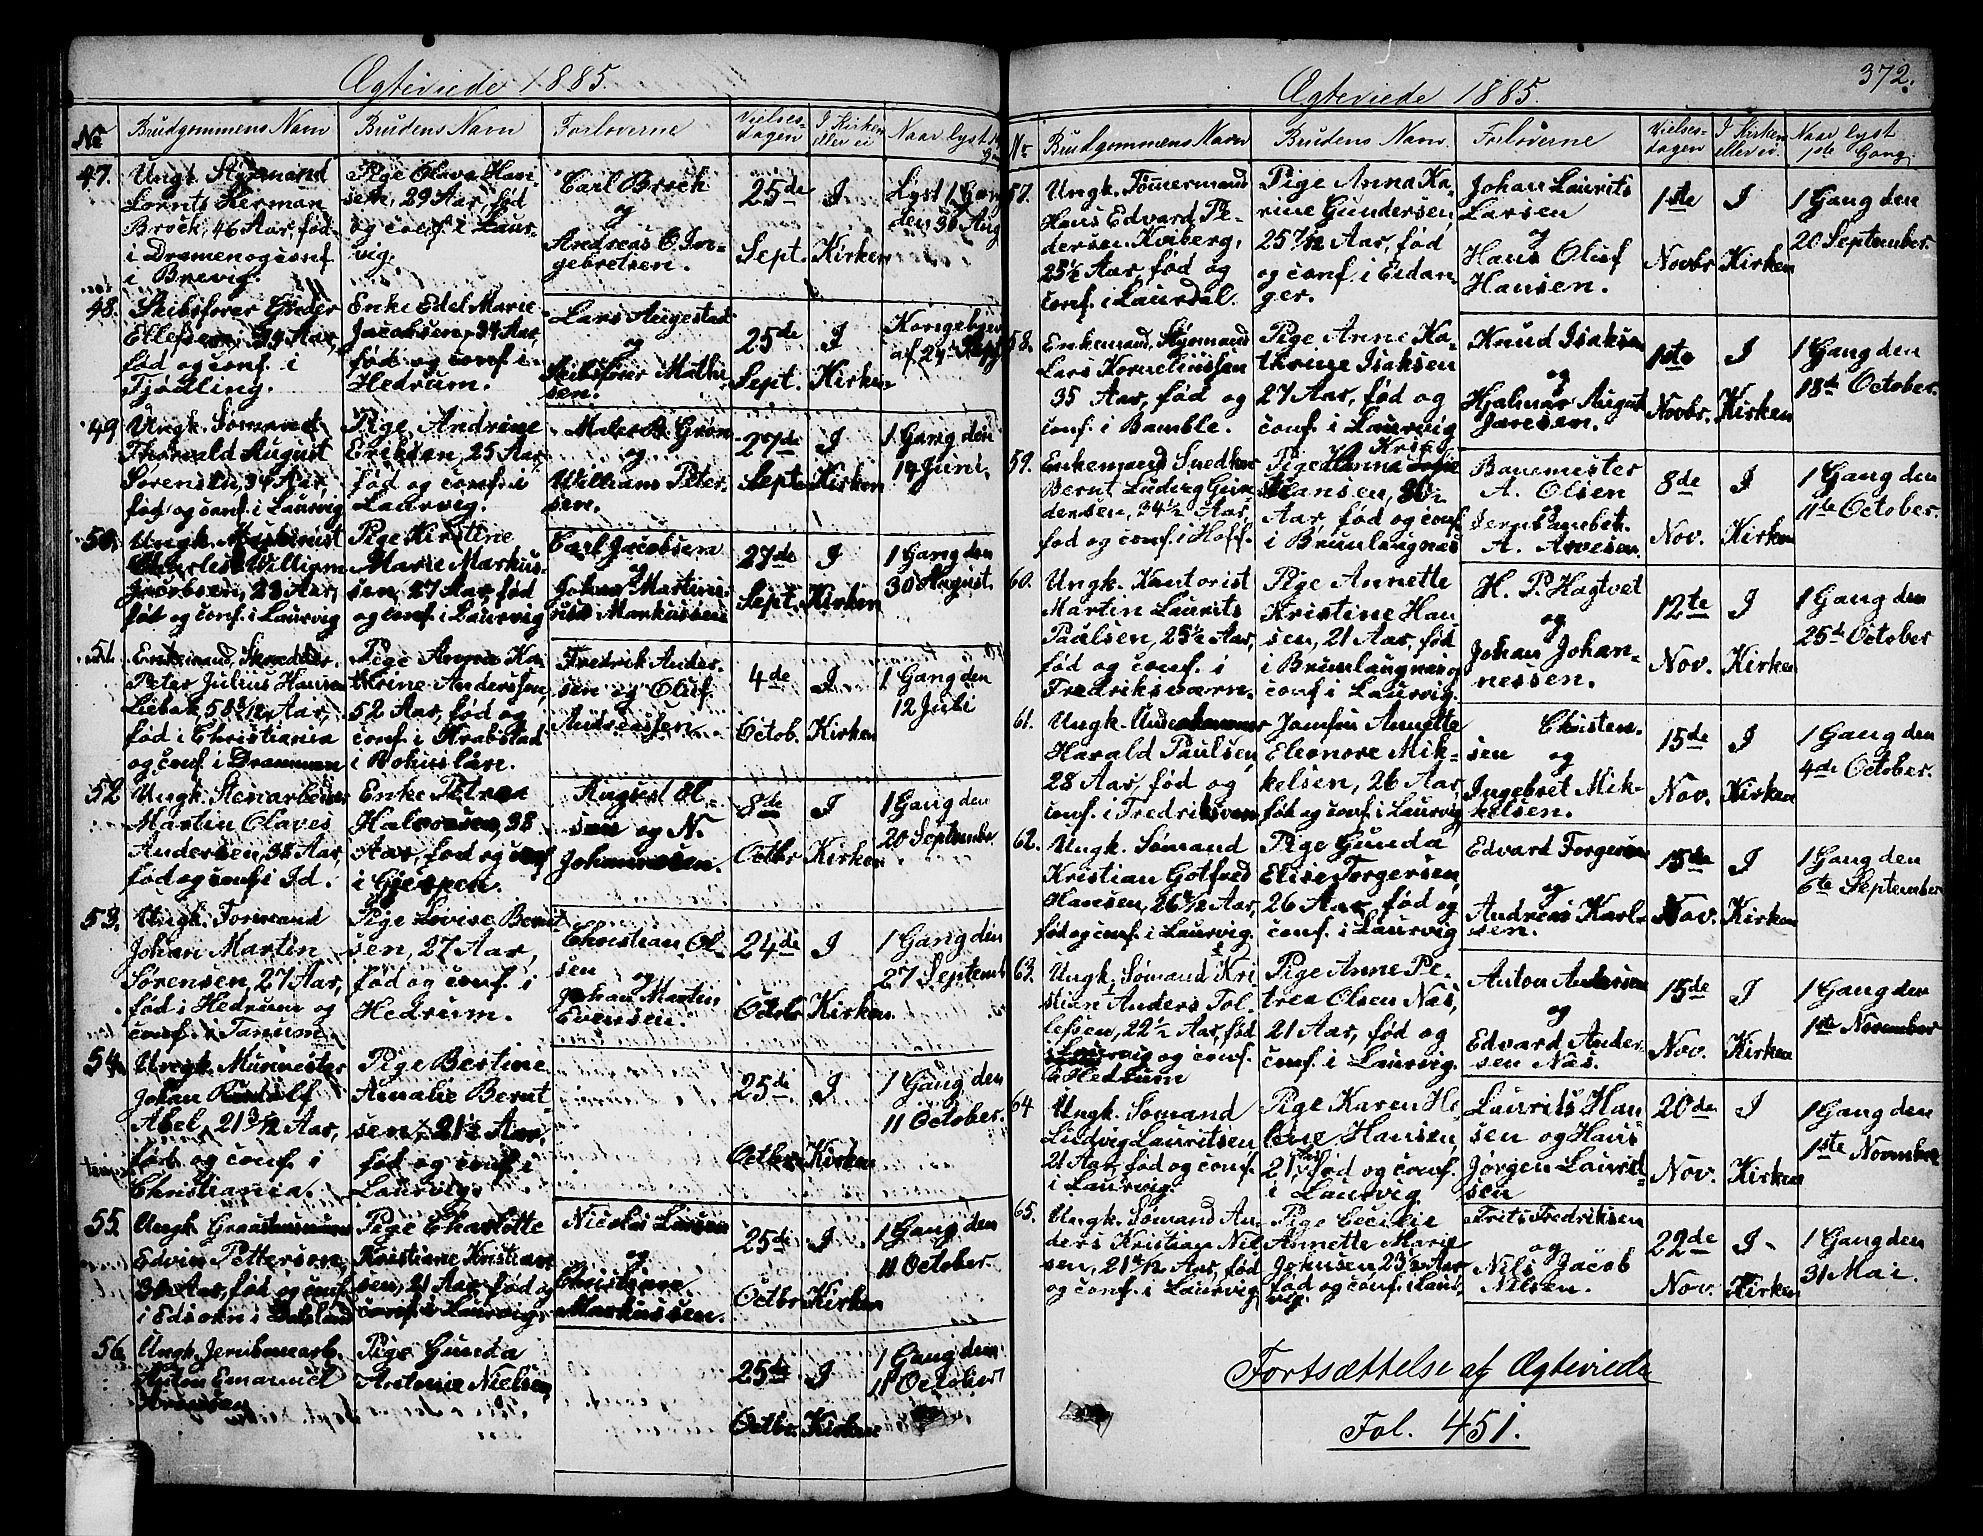 Ægteviede 1885.
No
Brudgommens Navn
Brudens Navn
Forloverne
Vielses-
dagen
I Kirken
eller ei
Naar lyst
47.
Ungk. Styrmand
Lornts Herman
Broch, 46 Aar, fød
i Dramen og conf.
i Brevig.
Pige Olava Han-
sen, 29 Aar, fød
og conf. i Laur-
vig.
Carl Broch
og
Andreas O. In-
gebretsen.
25de
Sept.
I
Kirken
Lyst 1 Gang
den 30 Aug
48.
Skibsfører Gunder
Ellefsen, 39 Aar,
fød og conf. i
Tjødling.
Enke Edel Marie
Jacobsen, 34 Aar,
fød og conf. i
Hedrum.
Lars Augestad
og
Skibsfører Mathi-
sen.
25de
Sept.
I
Kirken
Kongebrev
af 24de Sept
49
Ungk. Sømand
Thorvald August
Sørensen, 34 Aar,
fød og conf. i Laurvig
Pige Andrine
Eriksen, 25 Aar,
fød og conf. i
Laurvig.
Maler B. Grøn
og
William Peter-
sen.
27de
Sept.
I
Kirken
1 Gang den
14 Juni.
50.
Ungk. Maskinist
Charles William
Jacobsen, 28 Aar,
føt og conf. i Laurvig
Pige Kirstine
Marie Markus-
sen, 27 Aar, fød
og conf. i Laurvig
Carl Jacobsen
og
Johan Martini-
us Markussen
27de
Sept.
I
Kirken
1 Gang den
30 August.
51
Enkemand, Skrædder
Peter Julius Hansen
Liebak, 58 Aar,
fød i Christiania
og conf. i Drammen
Pige Anna Ka-
thrine Andersen,
52 Aar, fød og
conf. i Krabstad
i Bohuslän.
Fredrik Ander-
sen og Oluf
Andreassen
4de
Octob.
I
Kirken
1 Gang den
12 Juli
52
Ungk. Stenarbeider
Martin Olaves
Andersen, 38 Aar,
fød og conf. i Id.
Enke Petrea
Halvorsen, 38
Aar, fød og conf
i Gjerpen.
August Ol-
sen og N.
Johannesen.
8de
Octbr
I
Kirken
1 Gang den
20 September
53.
Ungk. Tormand
Johan Martin
Sørensen, 27 Aar,
fød i Hedrum og
conf. i Tanum.
Pige Lovise Bernt
sen, 27 Aar,
fød og conf. i
Hedrum.
Christian Ol-
sen
og
Johan Martin
Evensen.
24de
Octbr
I
Kirken
1 Gang den
27 Septemb
54.
Ungk. Murmester
Johan Rudolf
Abel, 21 3/12 Aar,
født og conf. i
Christiania.
Pige Bertine
Amalie Bernt-
sen, 21½ Aar,
fød og conf. i
Laurvig.
25de
Octbr
I
Kirken
1 Gang den
11 October.
55.
Edvin Pettersen,
30 Aar, fød og conf.
i Edsokn i Dalsland
Pige Charlotte
Kristiane Kristian
sen, 21 Aar, fød og
conf. i Laurvig.
Nicolai Larsen
og
Christian
Markussen.
25de
Octbr
I
Kirken
1 Gang den
11 October.
56
Ungk. Jernbanearb.
Anton Emanuel
Pige Gunda
Antonie Nielsen,
25de
Octbr.
I
Kirken
1 Gang den
11 October
372.
Ægteviede 1885.
No
Brudgommens Navn
Brudens Navn
Forloverne
Vielses-
dagen
I Kirken
eller ei.
Naar lyst
1ste Gang
57.
Ungk. Tømmermand
Hans Edvard Pe-
dersen Kviberg,
25½ Aar, fød og
conf. i Laurdal.
Pige Anna Ka-
rine Gundersen,
25 7/12 Aar, fød
og conf. i Eidan-
ger.
Johan Laurits
Larsen
og
Hans Oluf
Hansen.
1ste
Novbr
I
Kirken
1 Gang den
20 September.
58.
Enkemand, Styrmand
Lars Korneliussen
35 Aar, fød og
conf. i Bamble.
Pige Anne Ka-
thrine Isaksen
27 Aar, fød og
conf. i Laurvig
Knud Isaksen
og
Hjalmar August
Jaresen.
1ste
Novbr.
I
Kirken
1 Gang den
18de October.
59.
Enkemand Snedker
Bernt Ludvig Gun-
dersen, 34½ Aar,
fød og conf. i Hoff.
Pige Hanna
Hansen,
Aar, fød og conf.
i Brunlangnæs
Banemester
A. Olsen
og
A. Arvesen.
8de
Nov.
I
Kirken
1 Gang den
11te October.
60.
Ungk. Kontorist
Martin Laurits
Paulsen, 25½ Aar,
fød og conf. i
Fredriksværn.
Pige Annette
Kristine Han-
sen, 21 Aar, fød
i Brunlangnæs og
conf. i Laurvig.
H. P. Hagtvet
og
Johan Johan-
nessen.
12te
Nov.
I
Kirken
1 Gang den
25de October
61.
Harald Paulsen,
28 Aar, fød og
conf. i Fredriksvern
Jomfru Annette
Eleonore Mik-
kelsen, 26 Aar,
fød og conf. i Laurvig
Christen-
sen og
Ingebret Mik-
kelsen.
15de
Nov.
I
Kirken
1 Gang den
4de October.
62.
Ungk. Sømand
Kristian Gotfred
Hansen, 26 Aar,
fød og conf. i Laurvig.
Pige Gunda
Elise Torgersen,
26 Aar, fød og
conf. i Laurvig
Edvard Torgersen
og
Andreas Karl-
sen.
15de
Nov.
I
Kirken
1 Gang den
6te September
63.
Ungk. Sømand Kri
stian Anders Tol-
lefsen, 22½ Aar, fød
i Laurvig og conf.
i Hedrum
Pige Anne Pe-
trea Olsen Nas,
21 Aar, fød og
conf. i Laurvig.
Anton Andersen
og
Edvard Ander-
sen Nas.
15de
Nov.
I
Kirken
1 Gang den
1ste November
64
Ungk. Sømand
Ludvig Lauritsen
21 Aar, fød og conf.
i Laurvig.
Pige Karen He-
lene Hansen,
21 Aar, fød og conf.
i Laurvig
Laurits Han-
sen og Hans
Jørgen Laurit-
sen
20de
Nov.
I
Kirken
1 Gang den
1ste November
65.
Ungk. Sømand An-
ders Kristian Nil-
sen, 21 Aar, fød
og conf. i Laurvig
Pige Cecilie
Annette Marie
Johnsen 23½ Aar
fød og conf. i Laur-
vig.
Frits Fredriksen
og
Nils Jacob
Nilsen.
22de
Nov.
I
Kirken
1 Gang den
31 Mai.
Fortsættelse af Ægteviede
Fol. 451.